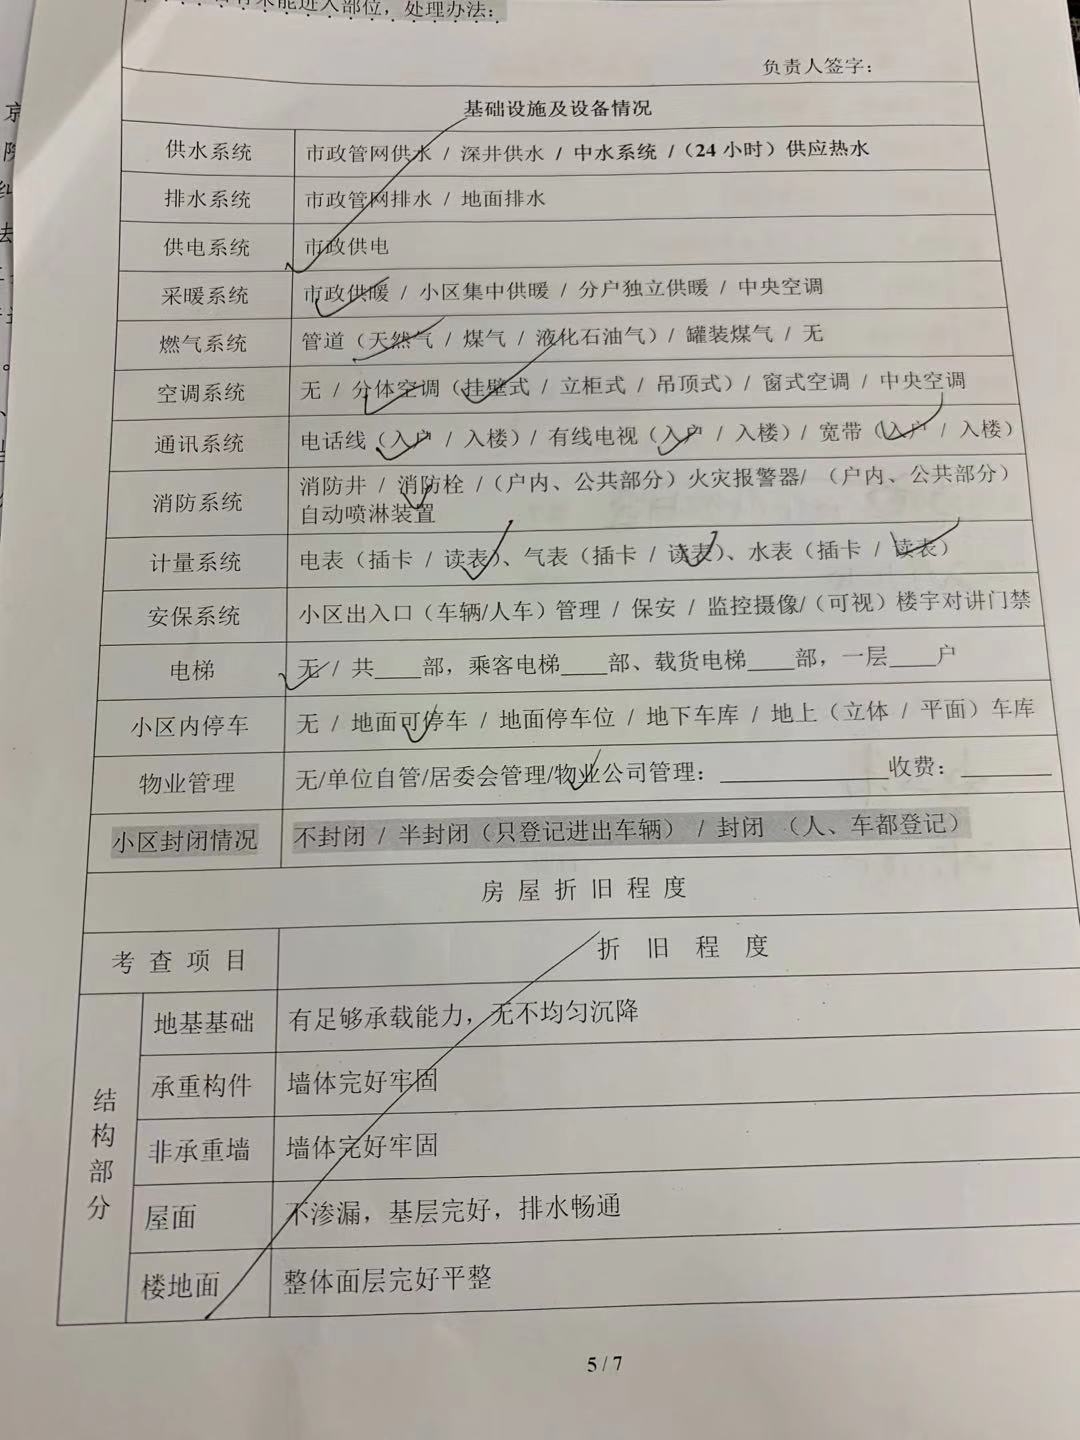 有未能进入部位，处理办法：
负责人签字：
基础设施及设备情况
供水系统 市政管网供水 / 深井供水 / 中水系统 /（24 小时）供应热水
排水系统 市政管网排水 / 地面排水
供电系统 市政供电
采暖系统 市政供暖 / 小区集中供暖 / 分户独立供暖 / 中央空调
燃气系统 管道（天然气 / 煤气 / 液化石油气）/ 罐装煤气 / 无
空调系统 无 / 分体空调（挂壁式 / 立柜式 / 吊顶式）/ 窗式空调 / 中央空调
通讯系统 电话线（入户 / 入楼）/ 有线电视（入户 / 入楼）/ 宽带（入户 / 入楼）
消防系统 消防井 / 消防栓 /（户内、公共部分）火灾报警器/ （户内、公共部分）
自动喷淋装置
计量系统 电表（插卡 / 读表）、气表（插卡 / 读表）、水表（插卡 / 读表）
安保系统 小区出入口（车辆/人车）管理 / 保安 / 监控摄像/（可视）楼宇对讲门禁
电梯 无 / 共____部，乘客电梯____部、载货电梯____部，一层____户
小区内停车 无 / 地面可停车 / 地面停车位 / 地下车库 / 地上（立体 / 平面）车库
物业管理 无/单位自管/居委会管理/物业公司管理：______________收费：________
小区封闭情况 不封闭 / 半封闭（只登记进出车辆） / 封闭 （人、车都登记）
房屋折旧程度
考查项目 折旧程度
结构部分
地基基础 有足够承载能力，无不均匀沉降
承重构件 墙体完好牢固
非承重墙 墙体完好牢固
屋面 不渗漏，基层完好，排水畅通
楼地面 整体面层完好平整
5 / 7